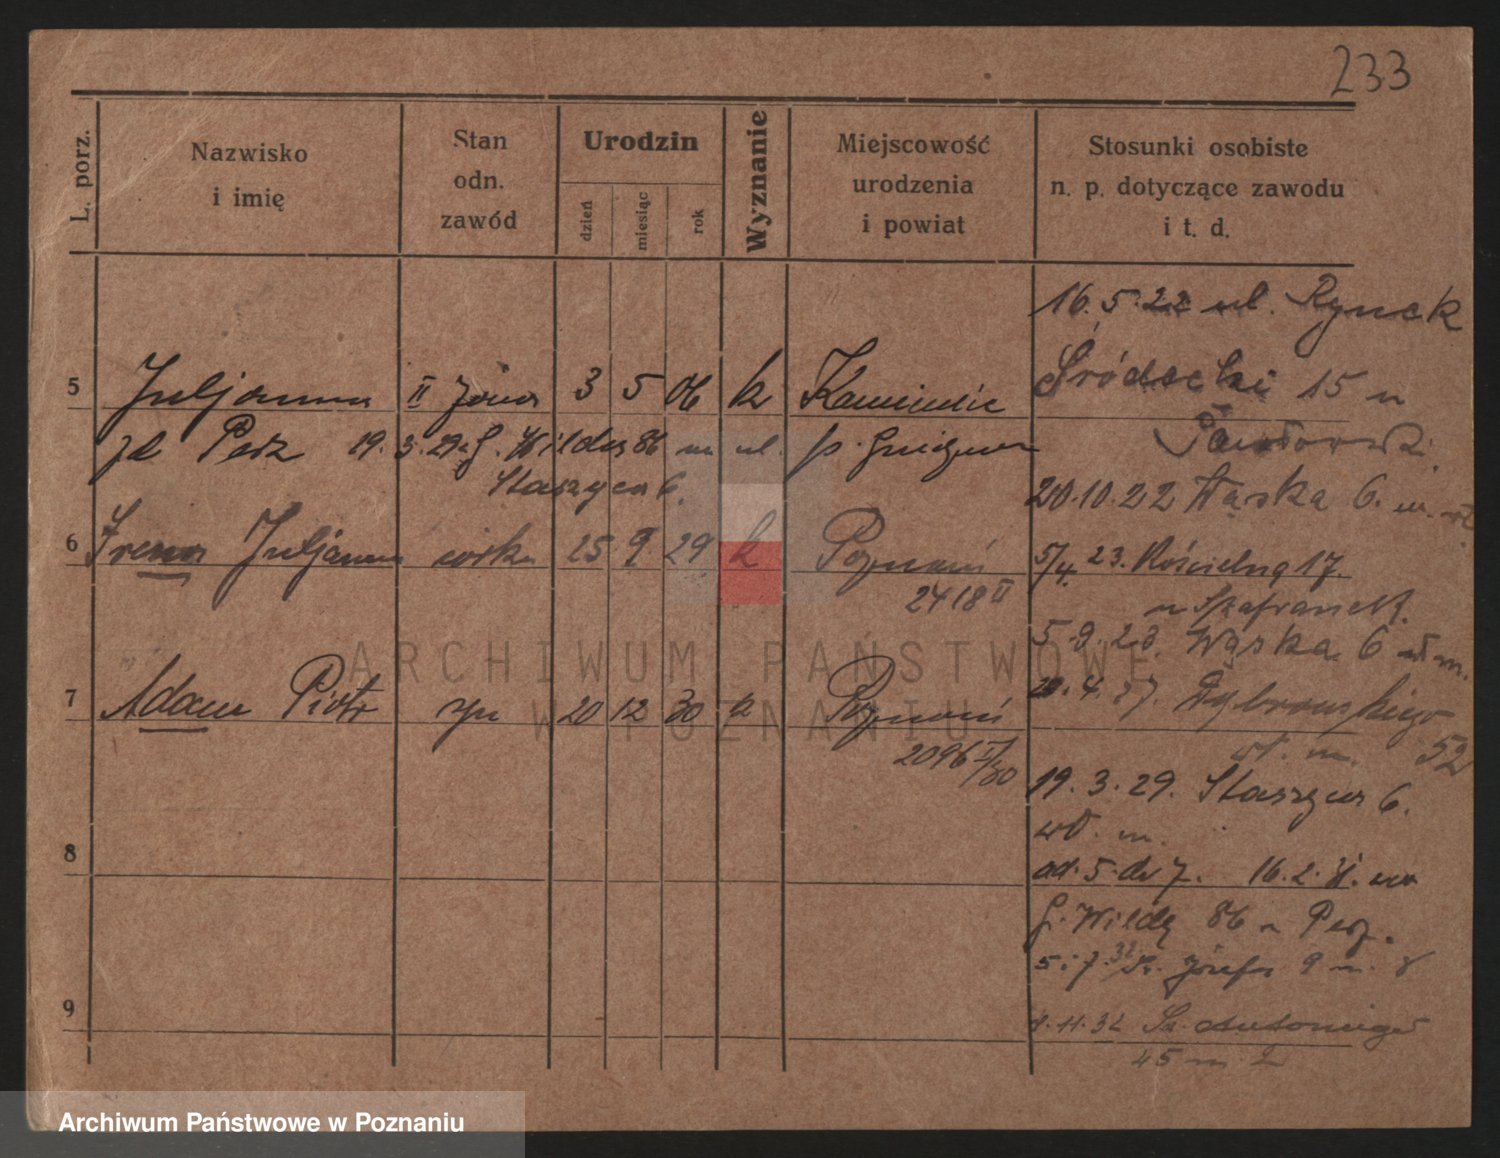 233
L. porz.
Nazwisko
i imię
Stan
odn.
zawód
Urodzin
dzień
miesiąc
rok
Wyznanie
Miejscowość
urodzenia
i powiat
Stosunki osobiste
n. p. dotyczące zawodu
i t. d.
16.5.22 ul. Rynek
Śródecki 15 u
5 Juljanna II żona 3 5 06 k Kamieniec
zd Perz 19.3.29 G. Wilda 86 m ul. p. Gniezno
Staszyca 6.
20.10.22 Wąska 6. m.
6 Irena Juljanna córka 25 9 29 k Poznań
2418 II
5/4. 23. Kościelna 17.
u Szafranek.
5.9.23. Wąska 6 wł m.
7 Adam Piotr syn 20 12 30 k Poznań
2096 II/30
4. 27. Dąbrowskiego
wł. m. 52
19.3.29. Staszyca 6.
wł. m.
8
od. 5. do 7. 16.2.31. na
G. Wildę 86 u Perz.
5 i 7. 32 Św. Józefa 9 m. 8
9
11.32 Św. Antoniego
45 m 2
ARCHIWUM PAŃSTWOWE
W POZNANIU
Archiwum Państwowe w Poznaniu